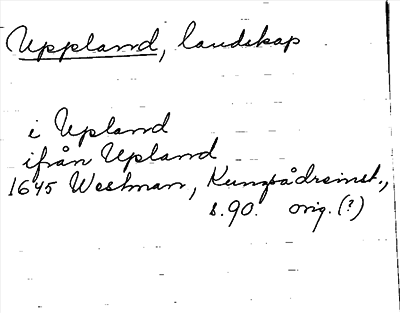 Uppland, landskap
i Upland
ifrån Upland
1645 Westman, Kungsådreinst.,
s.90. orig. (?)